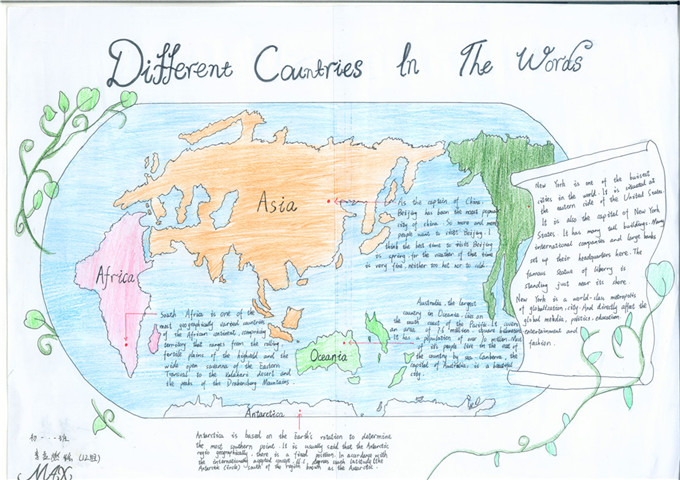 Different Countries In The Words
Asia
Africa
Oceania
Antarctica
As the captain of China
Beijing has been the most popular
city of china. So more and more
people want to visit Beijing. I
think the best time to visit Beijing
is spring, for the weather of that time
is very fine, neither too hot nor to cold.
New York is one of the busiest
cities in the world. It is situated at
the eastern side of the United States.
It is also the capital of New York
State. It has many tall buildings. Many
international companies and large banks
set up their headquarters here. The
famous Statue of liberty is
standing just near its shore.
New York is a world-class metropolis
of globalization city. And directly affect the
global media, politics, education,
entertainment and
fashion.
South Africa is one of the
most geographically varied countries
of the African continent, comprising
territory that ranges from the rolling,
fertile plains of the highveld and the
wide open savanna of the Eastern
Transvaal to the Kalahari desert and
the peaks of the Drakensberg Mountains.
Australia, the largest
country in Oceania, lies on
the south west of the Pacific. It covers
an area of 7.6 million square kilometres
It has a population of over 20 million. Most
of its people live in the east of
the country by sea. Canberra, the
capital of Australia, is a beautiful
city.
Antarctica is based on the Earth's rotation to determine
the most southern point. It is usually said that the Antarctic
geographically, there is a fixed position. In accordance with
the internationally accepted concept, degrees south latitude (the
Antarctic Circle) south of the region known as the Antarctic.
初一·一班
(12班)
MAX